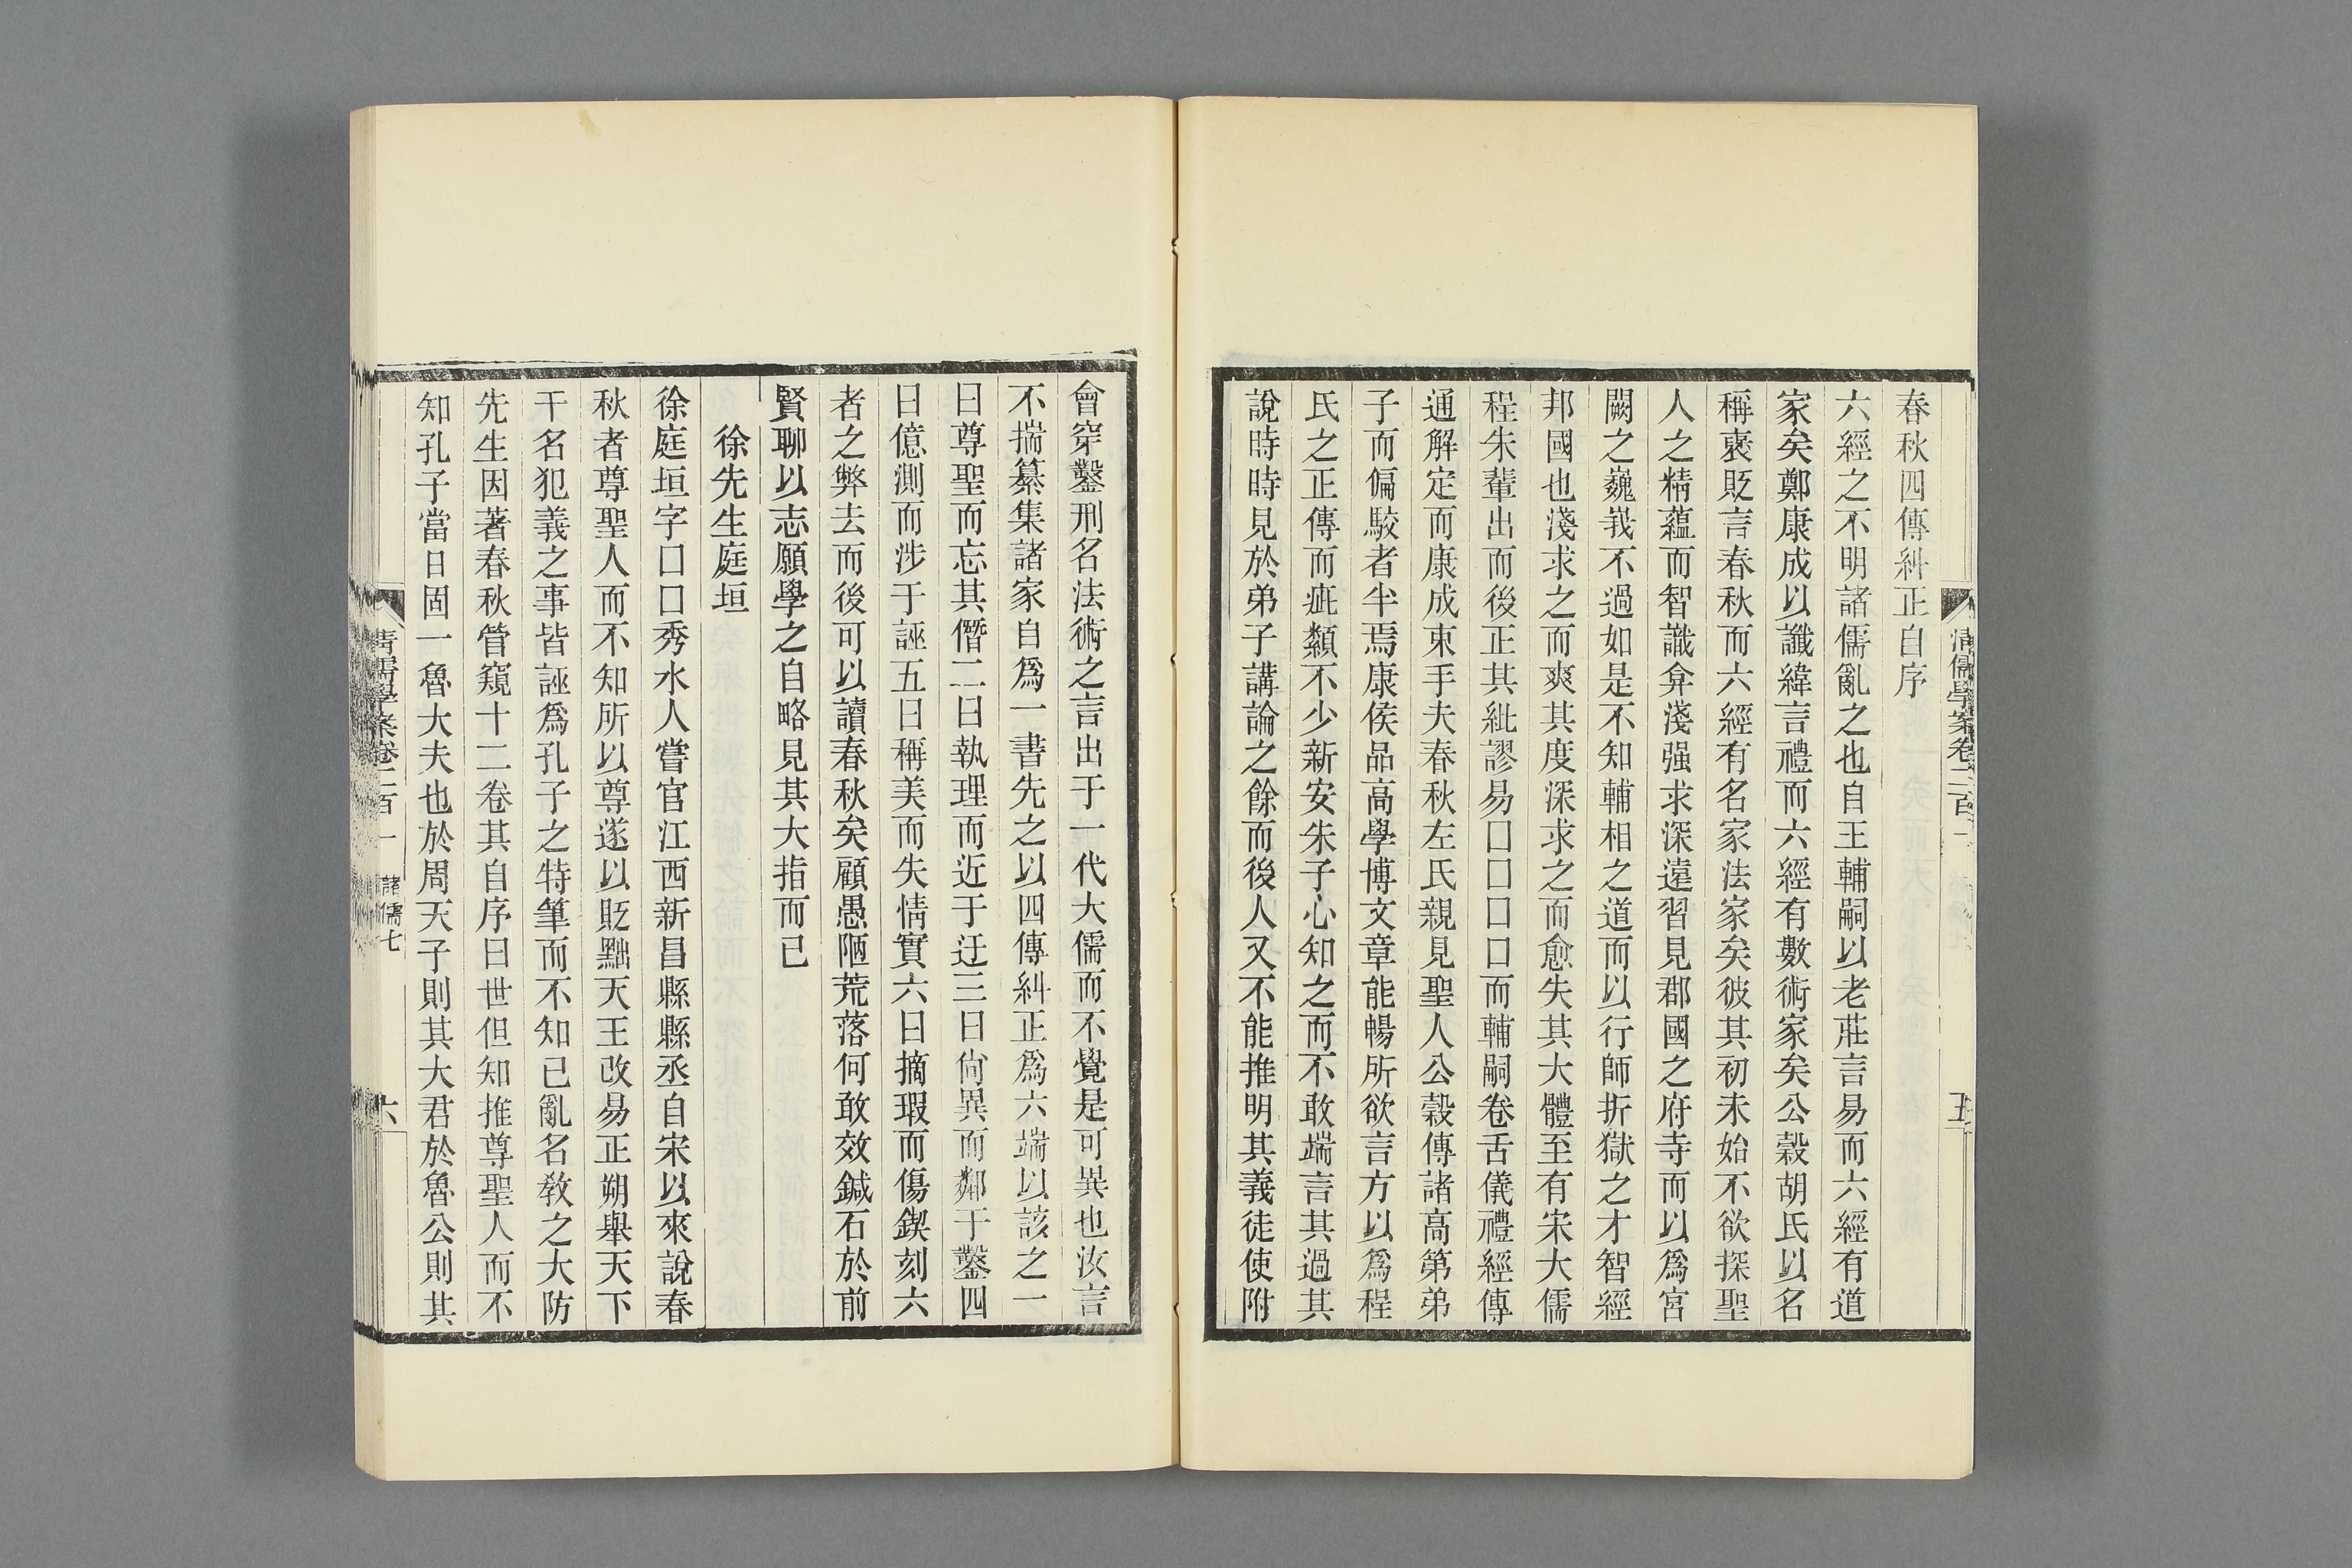 清儒學案卷二百一
五
春秋四傳糾正自序
六經之不明諸儒亂之也自王輔嗣以老莊言易而六經有道
家矣鄭康成以讖緯言禮而六經有數術家矣公穀胡氏以名
稱褒貶言春秋而六經有名家法家矣彼其初未始不欲探聖
人之精蘊而智識弇淺强求深遠習見郡國之府寺而以爲宮
闕之巍峩不過如是不知輔相之道而以行師折獄之才智經
邦國也淺求之而爽其度深求之而愈失其大體至有宋大儒
程朱輩出而後正其紕謬易囗囗囗囗而輔嗣卷舌儀禮經傳
通解定而康成束手夫春秋左氏親見聖人公穀傳諸高第弟
子而偏駮者半焉康侯品高學博文章能暢所欲言方以爲程
氏之正傳而疵纇不少新安朱子心知之而不敢端言其過其
說時時見於弟子講論之餘而後人又不能推明其義徒使附
會穿鑿刑名法術之言出于一代大儒而不覺是可異也汝言
不揣纂集諸家自爲一書先之以四傳糾正爲六端以該之一
曰尊聖而忘其僭二曰執理而近于迂三曰尙異而鄰于鑿四
曰億測而涉于誣五曰稱美而失情實六曰摘瑕而傷鍥刻六
者之弊去而後可以讀春秋矣顧愚陋荒落何敢效鍼石於前
賢聊以志願學之自略見其大指而已
徐先生庭垣
徐庭垣字囗囗秀水人嘗官江西新昌縣縣丞自宋以來說春
秋者尊聖人而不知所以尊遂以貶黜天王改易正朔舉天下
干名犯義之事皆誣爲孔子之特筆而不知已亂名敎之大防
先生因著春秋管窺十二卷其自序曰世但知推尊聖人而不
知孔子當日固一魯大夫也於周天子則其大君於魯公則其
清儒學案卷二百一 諸儒七
六